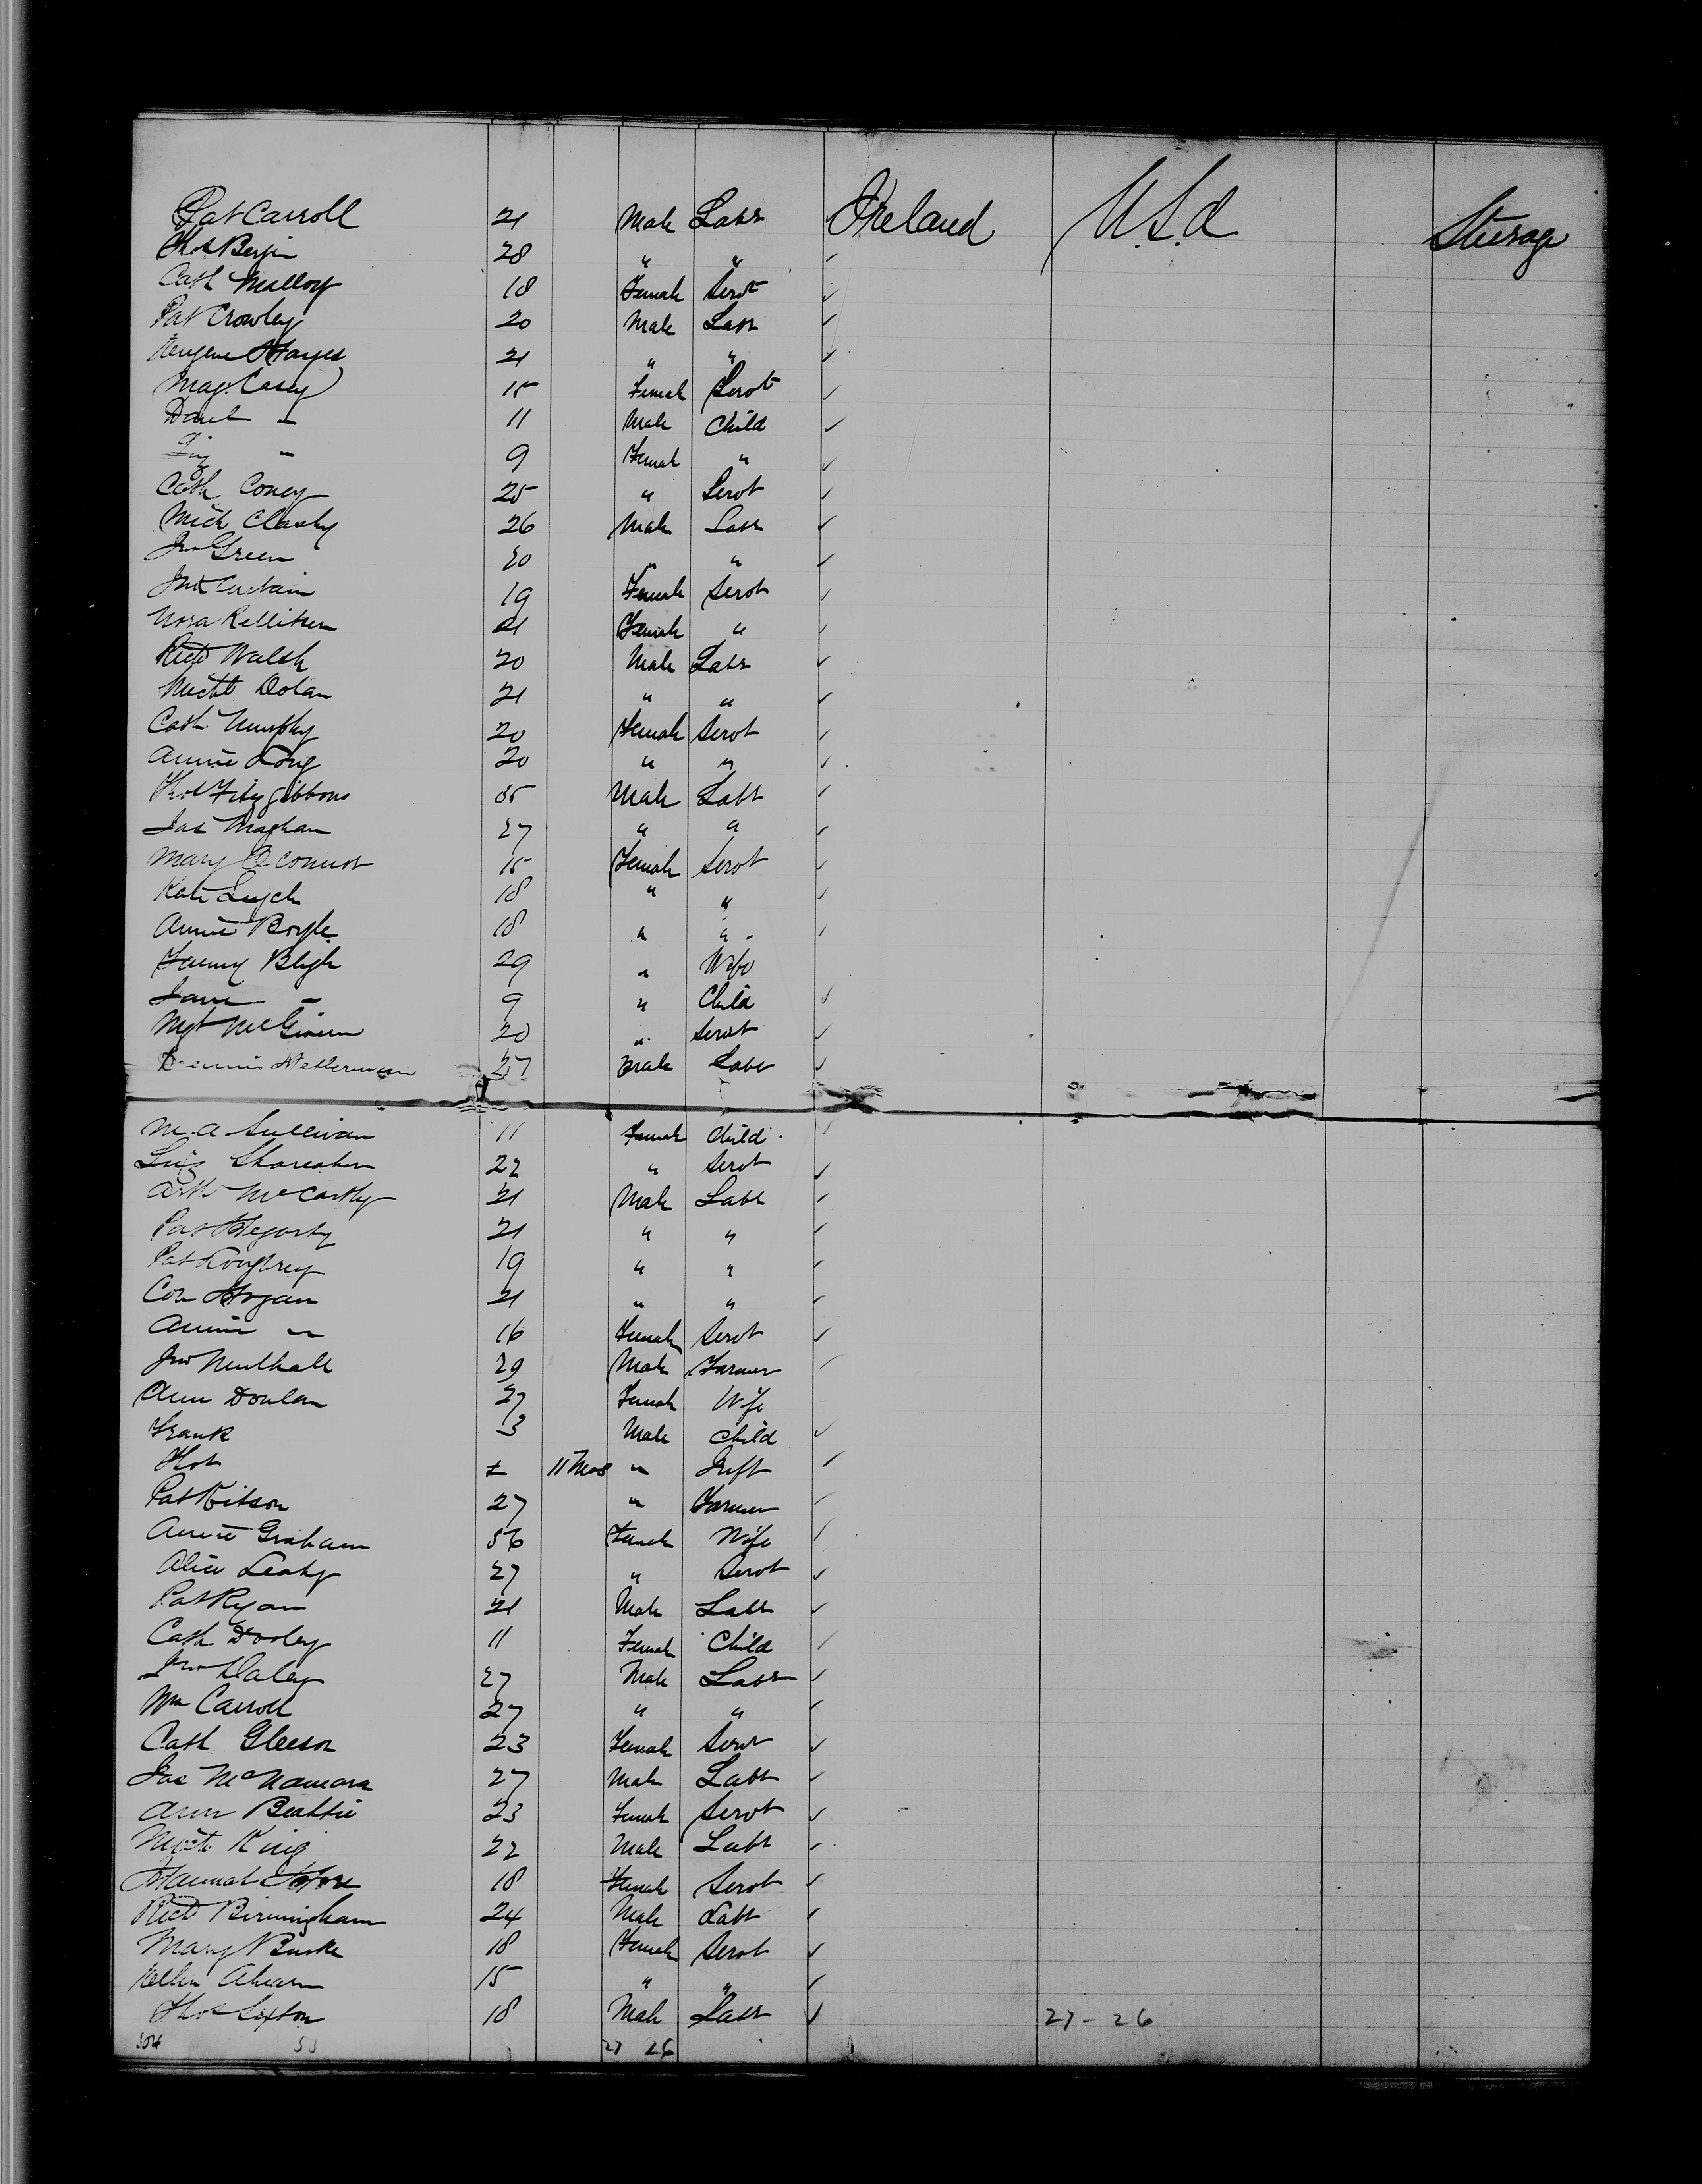 Pat Carroll 21 Male Labr Ireland U.S.A Steerage
Thos Bergin 28 " "
Cath Malloy 18 Female Servt
Pat Crowley 20 Male Labr
Eugene Hayes 21 " "
Mag. Casey 15 Female Servt
Danl " 11 Male Child
Liz " 9 Female "
Cath Coney 25 " Servt
Mich Clasby 26 Male Labr
Jno Green 20 " "
Curtain 19 Female Servt
Nora Kelliher 21 Female "
Richd Walsh 20 Male Labr
Michl Dolan 21 " "
Cath Murphy 20 Female Servt
Annie Long 20 " "
Thos Fitzgibbons 35 Male Labr
Jas Maghan 27 " "
Mary O'Connor 15 Female Servt
Kate Lynch 18 " "
Annie Boyle 18 " "
Fanny Bligh 29 " Wife
Jane " 9 " Child
Mgt McGivern 20 " Servt
Dennis Hefferman 27 Male Labr
M.A Sullivan 11 Female Child
Liz 22 " Servt
Arth McCarthy 21 Male Labr
Pat Hegarty 21 " "
Pat Loughrey 19 " "
Con Hogan 21 " "
Annie " 16 Female Servt
Jno Mulhall 29 Male Farmer
Ann Donlan 27 Female Wife
Frank 3 Male Child
Thos 11 Mos " Inft
Pat Kitson 27 " Farmer
Annie Graham 56 Female Wife
Alice Leahy 27 " Servt
Pat Ryan 21 Male Labr
Cath Dooley 11 Female Child
Jno Daley 27 Male Labr
Wm Carroll 27 " "
Cath Gleeson 23 Female Servt
Jas McNamara 27 Male Labr
Ann Beattie 23 Female Servt
Michl King 22 Male Labr
Hannah Hore 18 Female Servt
Richd Birmingham 24 Male Labr
Mary Burke 18 Female Servt
Ellen Ahearn 15 " "
Thos Sexton 18 Male Labr 27 - 26
53 27 26